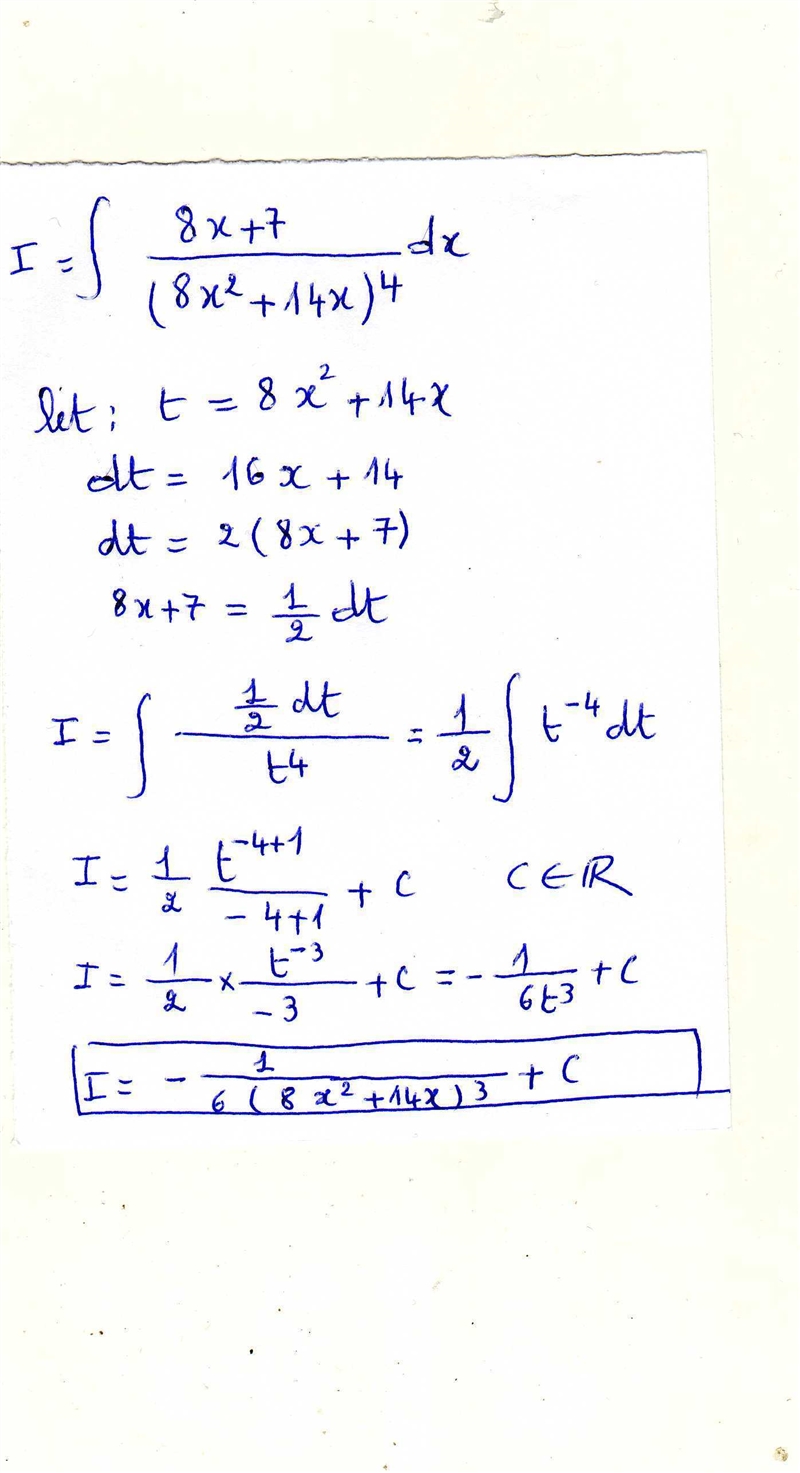 I = ∫ (8x+7)/(8x²+14x)⁴ dx
let; t = 8x² + 14x
dt = 16x + 14
dt = 2(8x + 7)
8x+7 = 1/2 dt
I = ∫ (1/2 dt)/t⁴ = 1/2 ∫ t⁻⁴ dt
I = 1/2 t⁻⁴⁺¹/(-4+1) + C C ∈ ℝ
I = 1/2 × t⁻³/-3 + C = - 1/(6t³) + C
I = - 1/(6(8x²+14x)³) + C